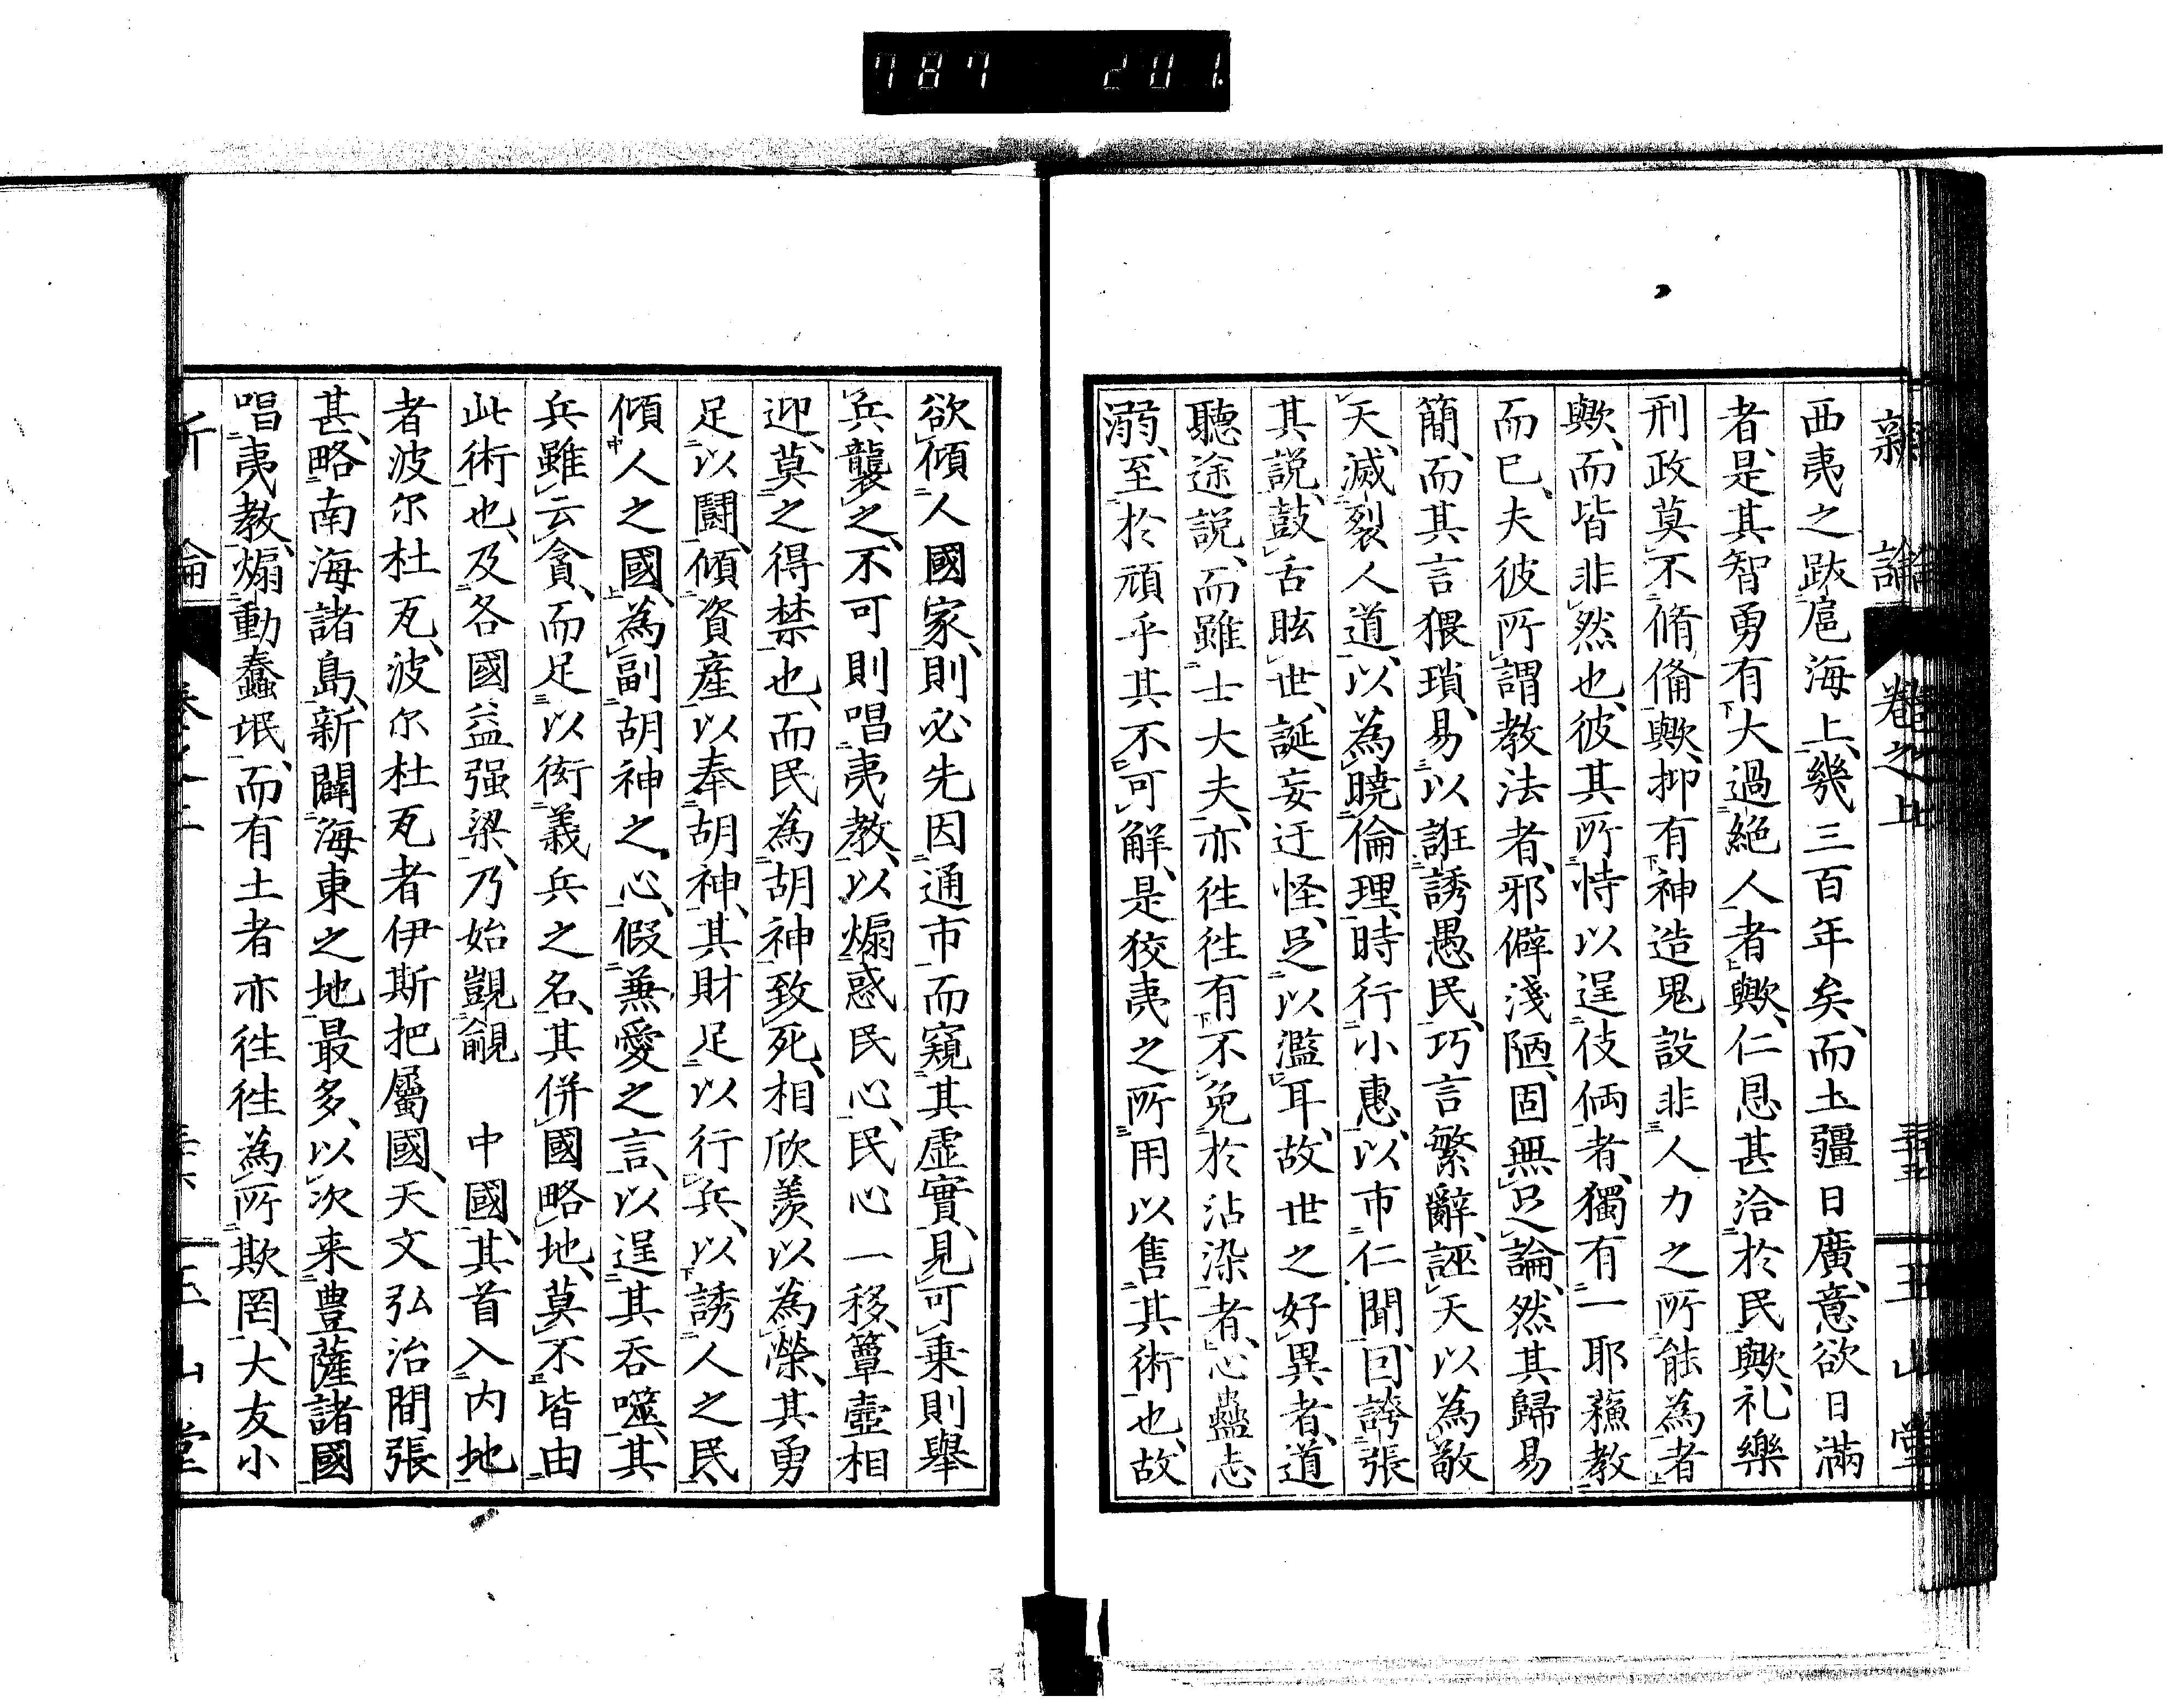 787 201
新論 卷之上 玉山堂
西夷之跋扈海上、幾三百年矣、而土疆日廣、意欲日滿
者、是其智勇有大過絕人者歟、仁恩甚洽於民歟、礼樂
刑政莫不脩備歟、抑有神造鬼設非人力之所能為者
歟、而皆非然也、彼其所恃以逞伎倆者、獨有一耶蘓教
而已、夫彼所謂教法者、邪僻淺陋、固無足論、然其歸易
簡、而其言猥瑣、易以誑誘愚民、巧言繁辭、誣天以為敬
天、滅裂人道、以為曉倫理、時行小惠、以市仁聞、因誇張
其説、鼓舌眩世、誕妄迂怪、足以濫耳、故世之好異者、道
聽途説、而雖士大夫、亦徃徃有不免於沾染者、心蠱志
溺、至於頑乎其不可解、是狡夷之所用以售其術也、故
欲傾人國家、則必先因通市、而窺其虛實、見可乗則舉
兵襲之、不可則唱夷教、以煽惑民心、民心一移、簞壺相
迎、莫之得禁也、而民為胡神致死、相欣羨以為榮、其勇
足以鬪、傾資産以奉胡神、其財足以行兵、以誘人之民、
傾人之國、為副胡神之心、假兼愛之言、以逞其吞噬、其
兵雖云貪、而足以衒義兵之名、其併國略地、莫不皆由
此術也、及各國益强梁、乃始覬覦 中國、其首入内地
者波尓杜瓦、波尓杜瓦者伊斯把屬國、天文弘治間張
甚、略南海諸島、新闢海東之地最多、以次来豊薩諸國
唱夷教、煽動蠢氓、而有土者亦徃徃為所欺罔、大友小
新論 玉山堂